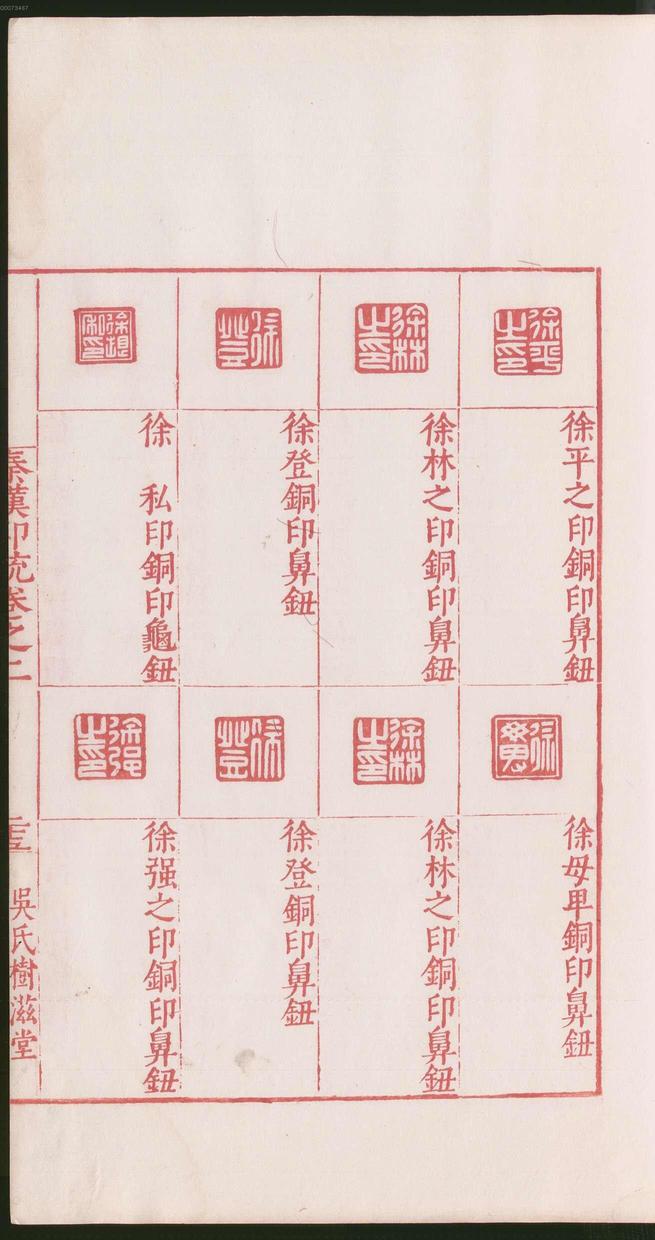 00073467
徐平之印銅印鼻鈕
徐林之印銅印鼻鈕
徐登銅印鼻鈕
徐 私印銅印龜鈕
徐毋畀銅印鼻鈕
徐林之印銅印鼻鈕
徐登銅印鼻鈕
徐强之印銅印鼻鈕
秦漢印統卷之二
吳氏樹滋堂